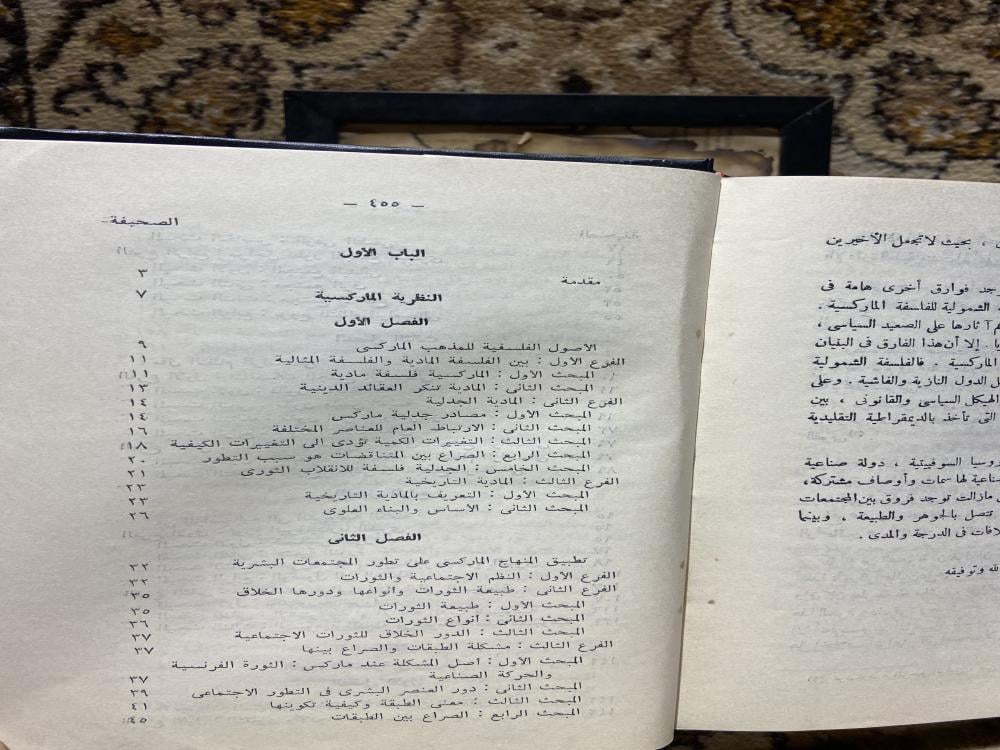 — ٤٥٥ —
الصحيفة
الباب الأول
مقدمة ٣
النظرية الماركسية ٧
الفصل الأول
الاصول الفلسفية للمذهب الماركسى ٩
الفرع الأول : بين الفلسفة المادية والفلسفة المثالية ١١
المبحث الأول : الماركسية فلسفة مادية ١١
المبحث الثانى : المادية تنكر العقائد الدينية ١٣
الفرع الثانى : المادية الجدلية ١٤
المبحث الأول : مصادر جدلية ماركس ١٤
المبحث الثانى : الارتباط العام للعناصر المختلفة ١٦
المبحث الثالث : التغييرات الكمية تؤدى الى التغييرات الكيفية ١٨
المبحث الرابع : الصراع بين المتناقضات هو سبب التطور ٢٠
المبحث الخامس : الجدلية فلسفة للانقلاب الثورى ٢١
الفرع الثالث : المادية التاريخية ٢٣
المبحث الأول : التعريف بالمادية التاريخية ٢٣
المبحث الثانى : الأساس والبناء العلوى ٢٦
الفصل الثانى
تطبيق المنهاج الماركسى على تطور المجتمعات البشرية ٣٢
الفرع الأول : النظم الاجتماعية والثورات ٣٢
الفرع الثانى : طبيعة الثورات وانواعها ودورها الخلاق ٣٥
المبحث الأول : طبيعة الثورات ٣٥
المبحث الثانى : أنواع الثورات ٣٦
المبحث الثالث : الدور الخلاق للثورات الاجتماعية ٣٧
الفرع الثالث : مشكلة الطبقات والصراع بينها ٣٧
المبحث الأول : اصل المشكلة عند ماركس : الثورة الفرنسية
والحركة الصناعية ٣٧
المبحث الثانى : دور العنصر البشرى فى التطور الاجتماعى ٣٩
المبحث الثالث : معنى الطبقة وكيفية تكوينها ٤١
المبحث الرابع : الصراع بين الطبقات ٤٥
، بحيث لا تجعل الأخيرين
جد فوارق أخرى هامة فى
الشمولية للفلسفة الماركسية .
آثارها على الصعيد السياسى ،
إلا أن هذا الفارق فى البنيان
الماركسية . فالفلسفة الشمولية
الدول النازية والفاشية . وعلى
الهيكل السياسى والقانونى ، بين
التى تأخذ بالديمقراطية التقليدية
روسيا السوفيتية ، دولة صناعية
صناعية لها سمات وأوصاف مشتركة ،
مازالت توجد فروق بين المجتمعات
تتصل بالجوهر والطبيعة ، وبينما
لافات فى الدرجة والمدى .
الله وتوفيقه